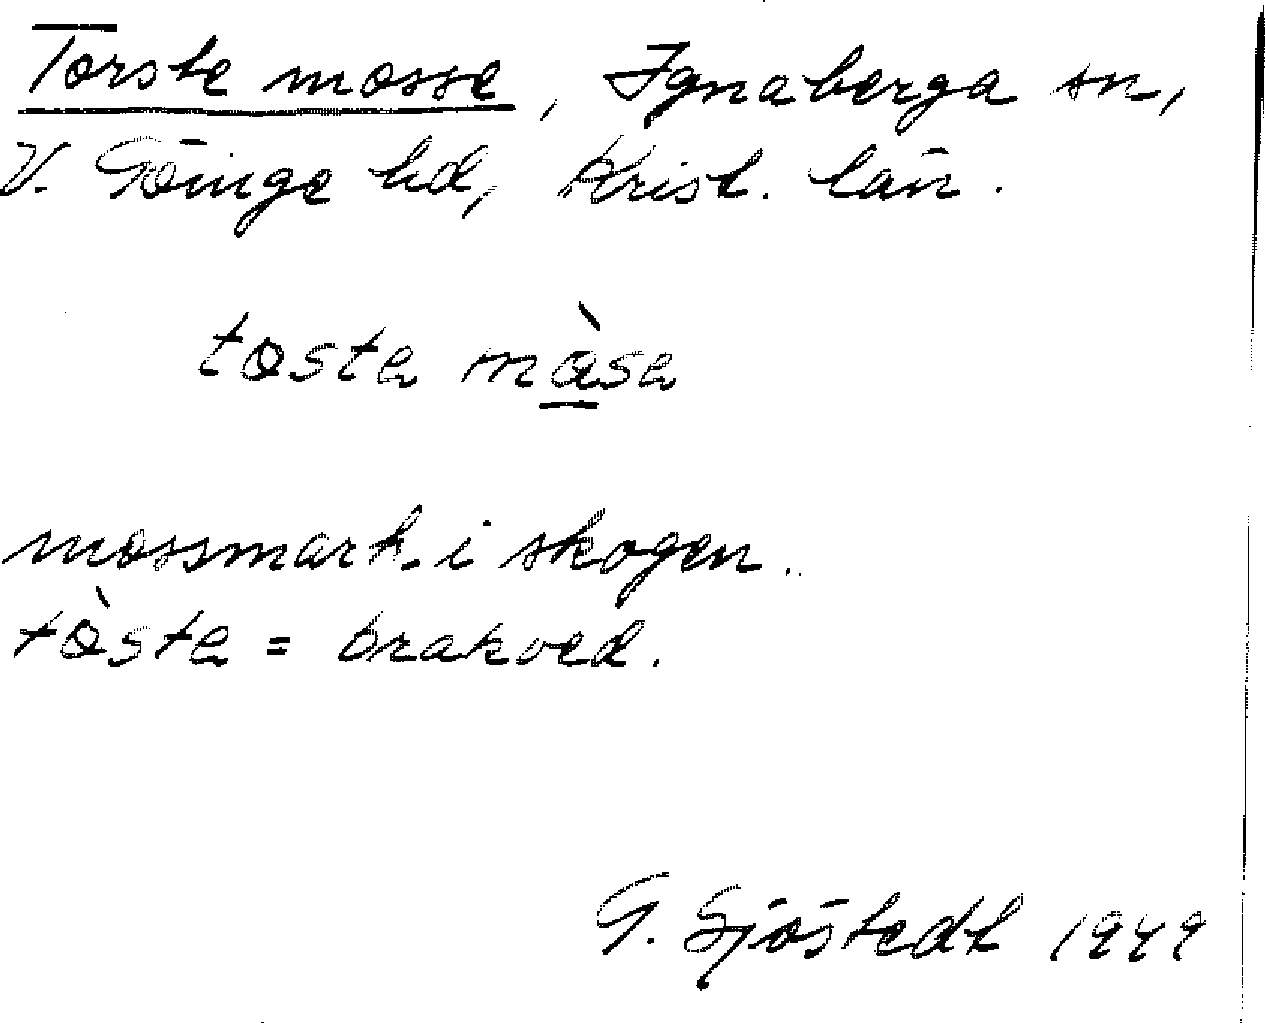 Torste mosse, Ignaberga sn,
V. Göinge hd, Krist. län.
tɵstɐ mɵ̀sɐ
mossmark i skogen.
tɵ̀stɐ = brakved.
G. Sjöstedt 1949